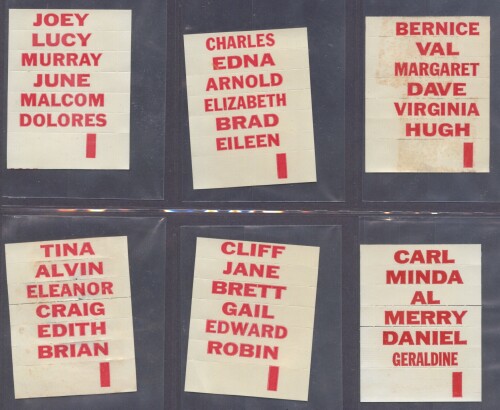 JOEY
LUCY
MURRAY
JUNE
MALCOM
DOLORES
CHARLES
EDNA
ARNOLD
ELIZABETH
BRAD
EILEEN
BERNICE
VAL
MARGARET
DAVE
VIRGINIA
HUGH
TINA
ALVIN
ELEANOR
CRAIG
EDITH
BRIAN
CLIFF
JANE
BRETT
GAIL
EDWARD
ROBIN
CARL
MINDA
AL
MERRY
DANIEL
GERALDINE